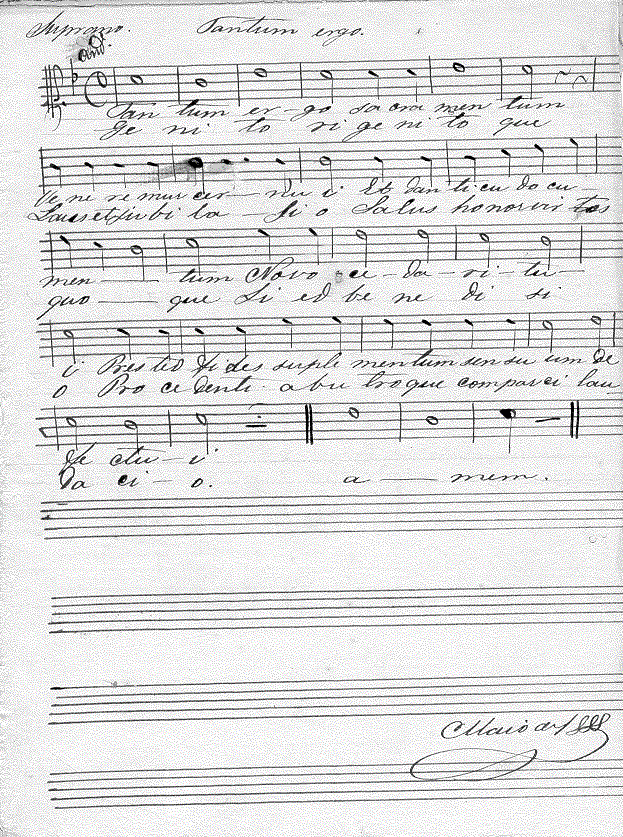 Suprano. Tantum ergo.
And.
Tan tum er-go sa cra men tum
Ge ni to ri ge ni to que
Ve ne re mur cer-nu i Et dan ti cu do cu-
Laus et ju bi la-si o Salus honor vir tos
men - tum Novo ce-da-ri-tu-
quo - que Si ed be ne di si
i Pres ted fi des suple mentum sen su um De
o Pro ce denti-abu tro que compar ei lau
fe ctu-i
da ci-o. a - mem.
Maio de